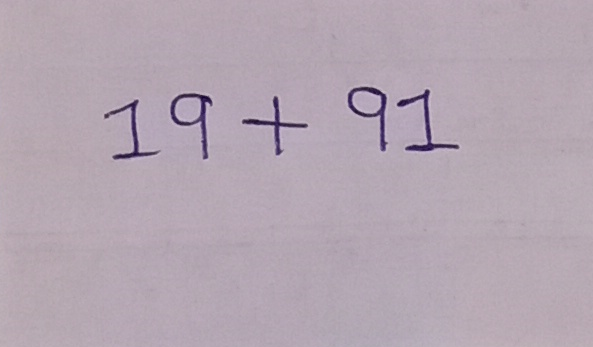 19 + 91